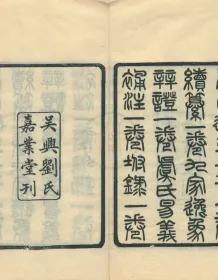 續纂一卷九家逸象
辨證一卷虞氏易義
補注一卷坿錄一卷
吳興劉氏
嘉業堂刊